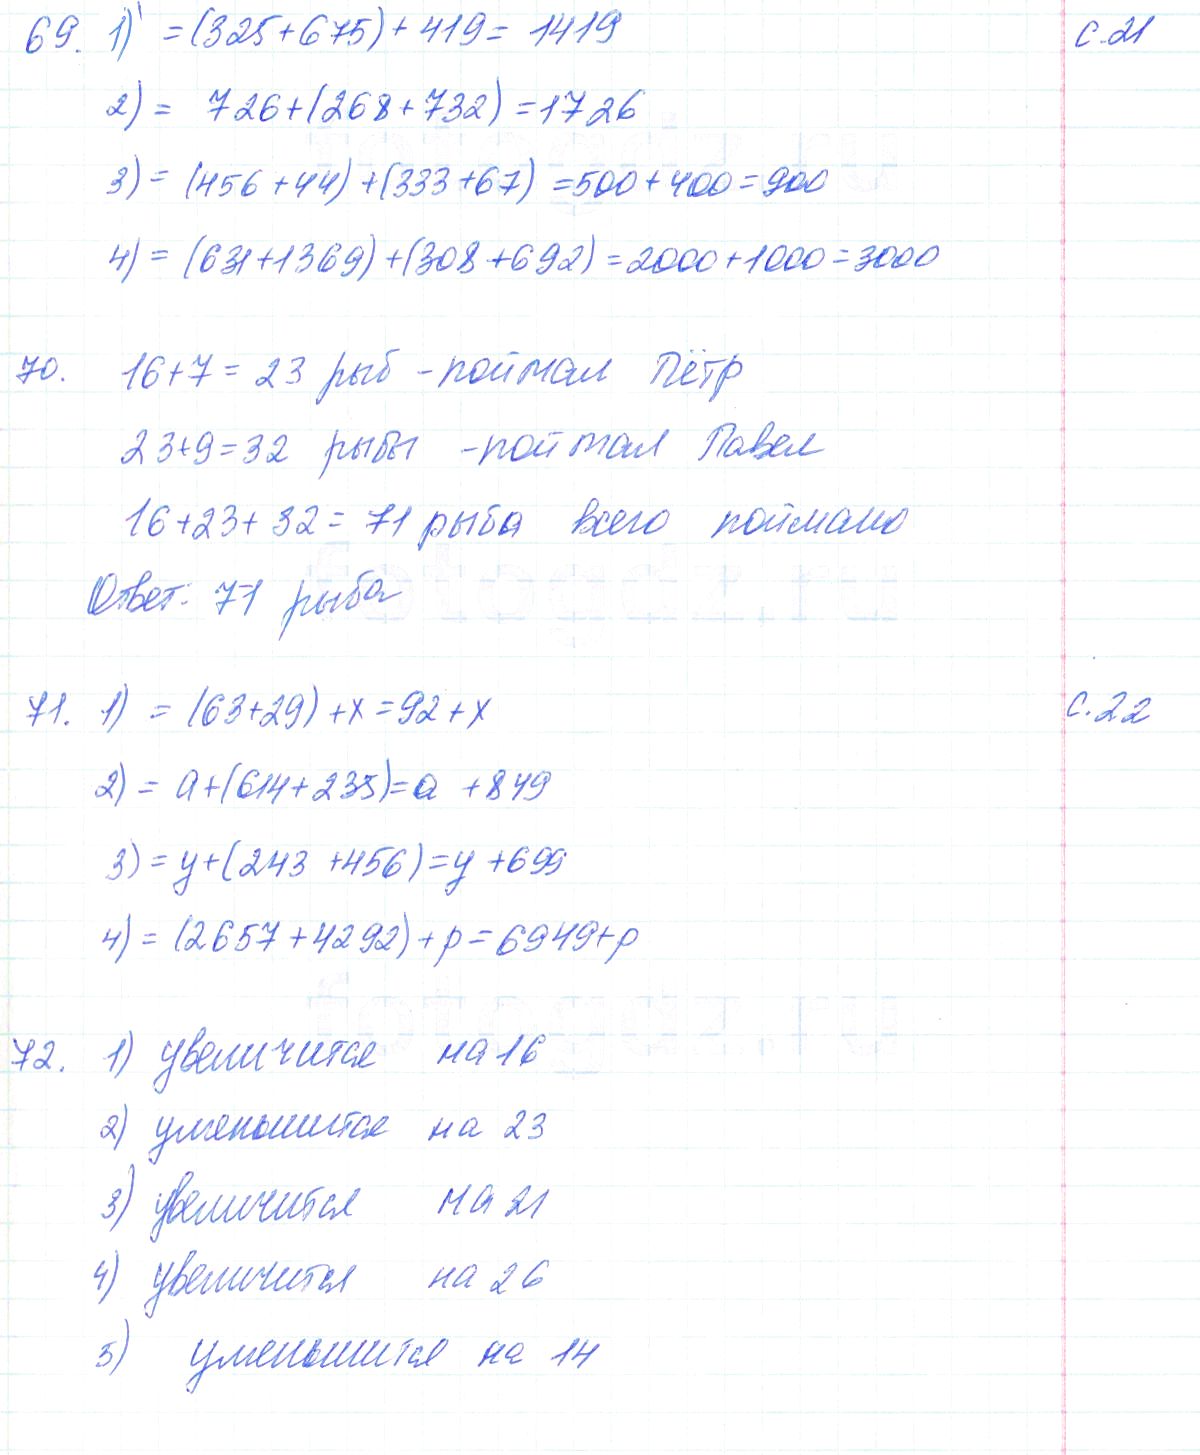 69. 1) = (325+675)+419= 1419
с.21
2) = 726+(268+732)=1726
3) = (456+44)+(333+67)=500+400=900
4) = (631+1369)+(308+692)=2000+1000=3000
70. 16+7=23 рыб -поймал Пётр
23+9=32 рыбы -поймал Павел
16+23+32=71 рыба всего поймано
Ответ: 71 рыба
71. 1) = (63+29)+x=92+x
с.22
2) = a+(614+235)=a+849
3) = y+(243+456)=y+699
4) = (2657+4292)+p=6949+p
72. 1) увеличится на 16
2) уменьшится на 23
3) увеличится на 21
4) увеличится на 26
5) уменьшится на 14